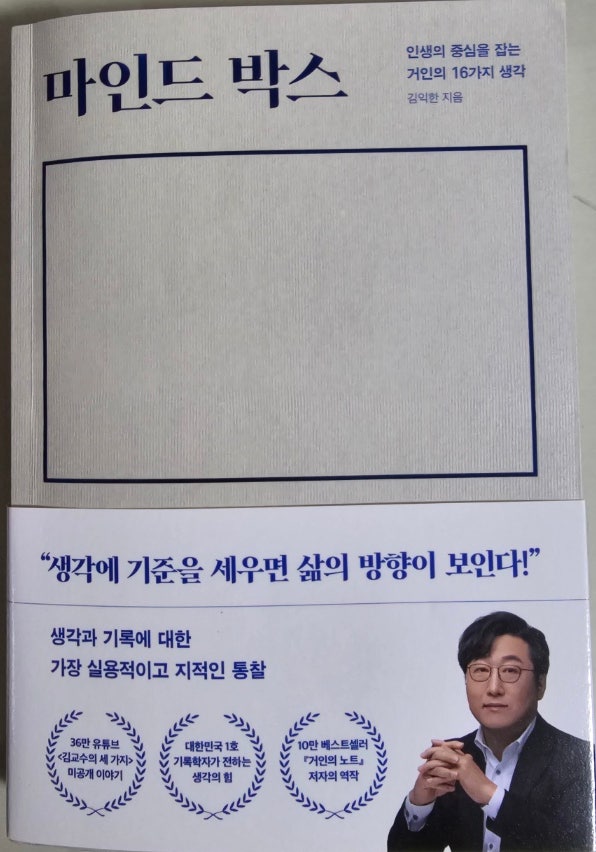 마인드 박스
인생의 중심을 잡는
거인의 16가지 생각
김익한 지음
“생각에 기준을 세우면 삶의 방향이 보인다!”
생각과 기록에 대한
가장 실용적이고 지적인 통찰
36만 유튜브
<김교수의 세 가지>
미공개 이야기
대한민국 1호
기록학자가 전하는
생각의 힘
10만 베스트셀러
『거인의 노트』
저자의 역작